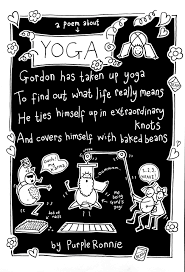 a poem about
YOGA
Gordon has taken up yoga
To find out what life really means
He ties himself up in extraordinary
knots
And covers himself with baked beans
by Purple Ronnie